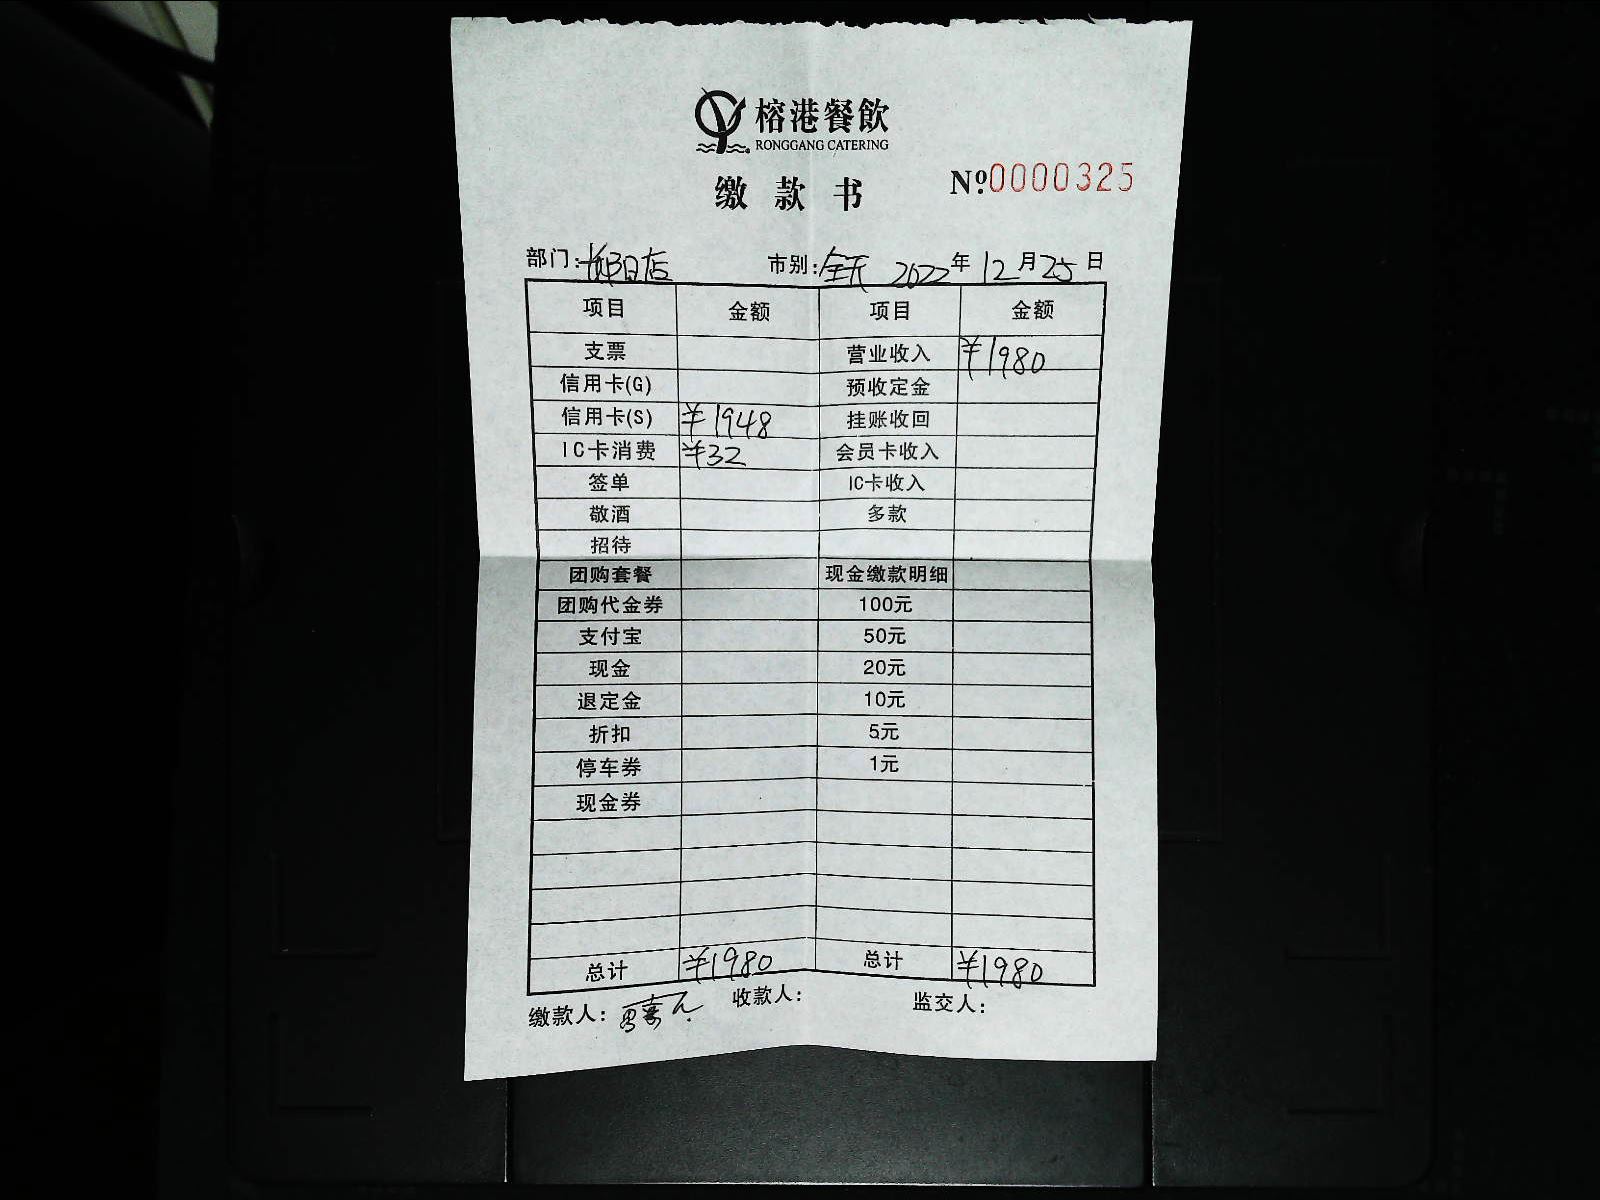 榕港餐飲
RONGGANG CATERING
缴款书
№:0000325
部门: 市别:全天 2022年12月25日
项目 金额 项目 金额
支票 营业收入 ¥1980
信用卡(G) 预收定金
信用卡(S) ¥1948 挂账收回
IC卡消费 ¥32 会员卡收入
签单 IC卡收入
敬酒 多款
招待
团购套餐 现金缴款明细
团购代金券 100元
支付宝 50元
现金 20元
退定金 10元
折扣 5元
停车券 1元
现金券
总计 ¥1980 总计 ¥1980
缴款人: 收款人: 监交人: